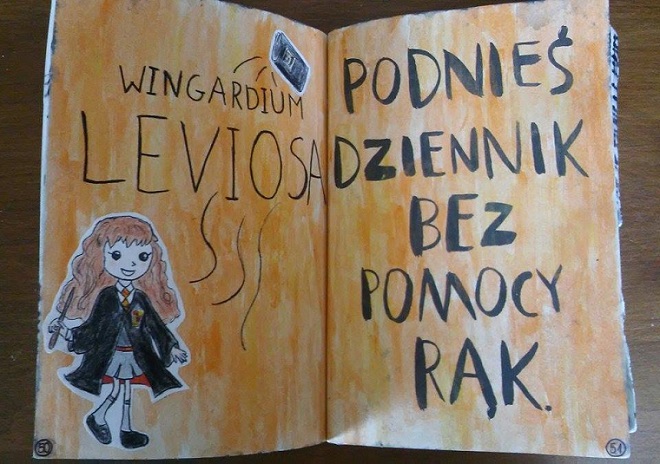 WINGARDIUM
LEVIOSA
50
PODNIEŚ
DZIENNIK
BEZ
POMOCY
RĄK.
51